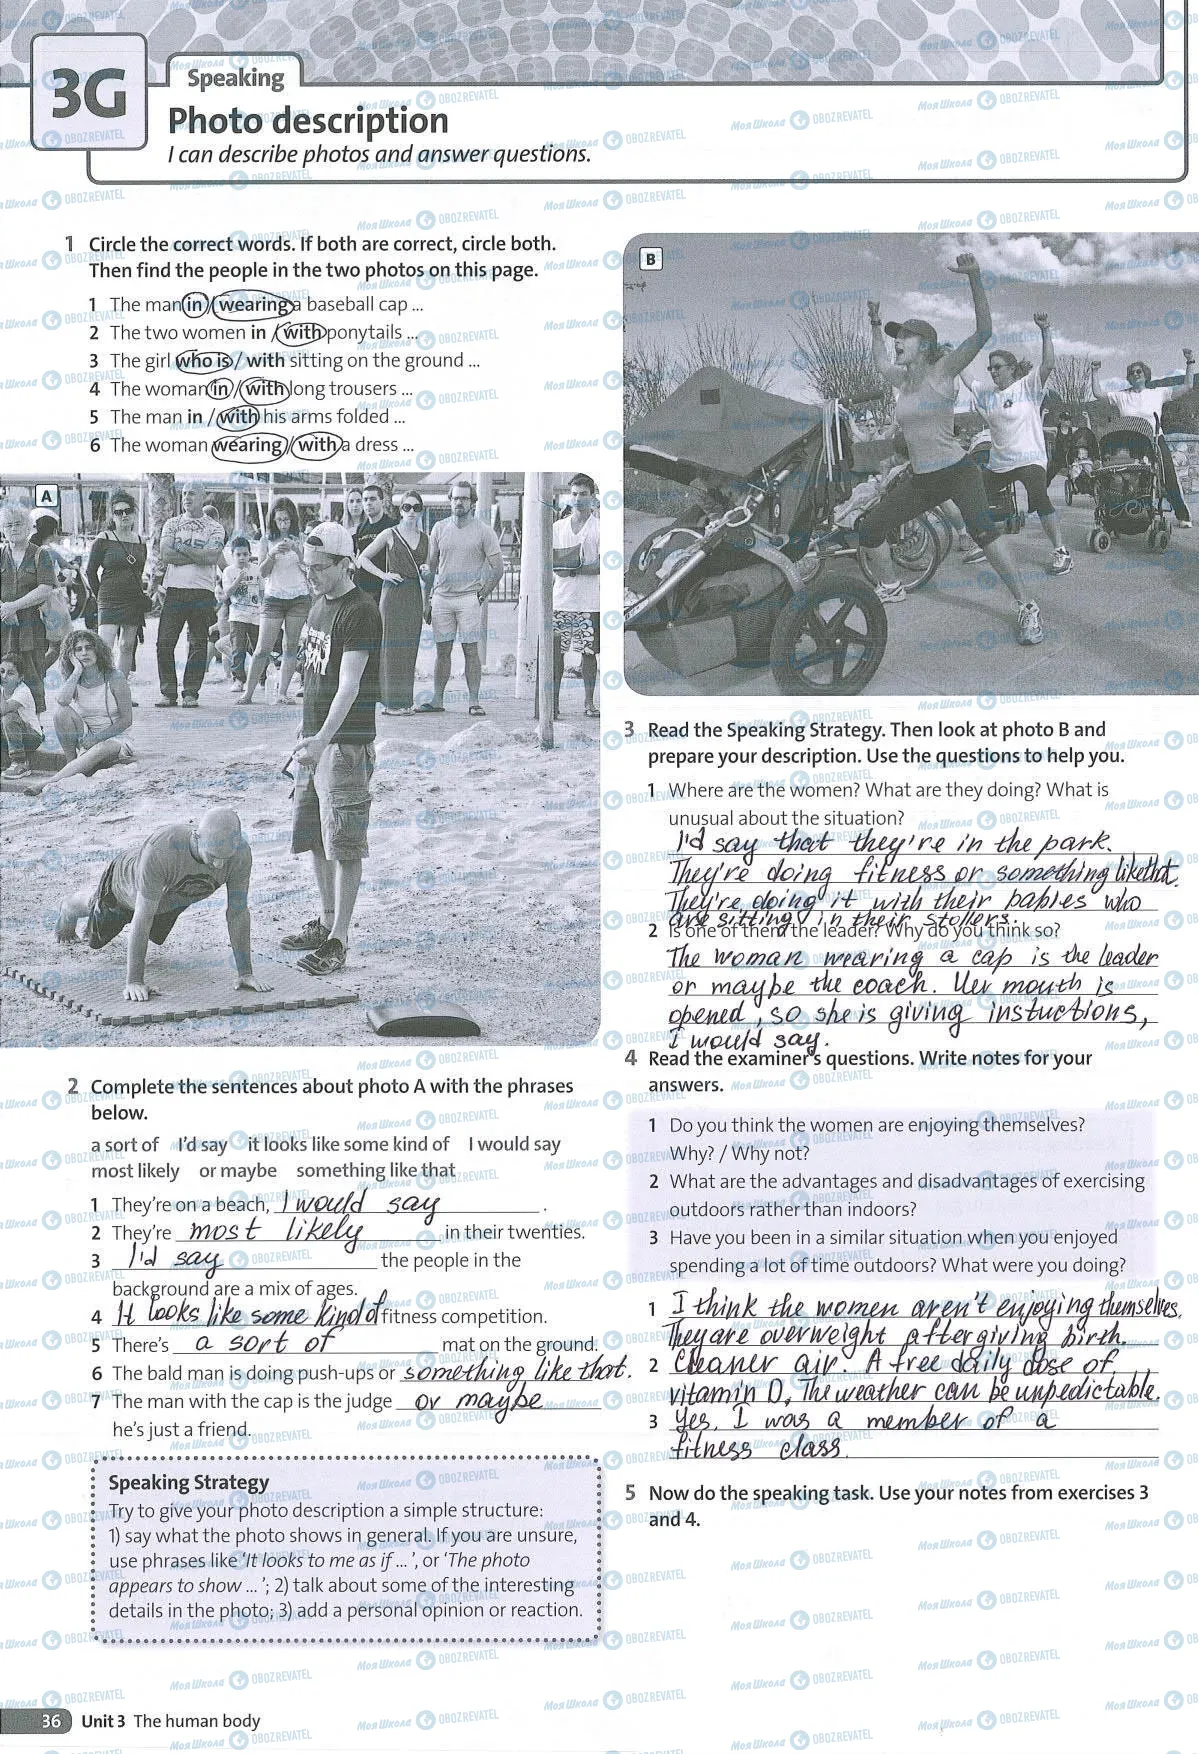 3G
Speaking
Photo description
I can describe photos and answer questions.
1 Circle the correct words. If both are correct, circle both.
Then find the people in the two photos on this page.
1 The man in / wearing a baseball cap ...
2 The two women in / with ponytails ...
3 The girl who is / with sitting on the ground ...
4 The woman in / with long trousers ...
5 The man in / with his arms folded ...
6 The woman wearing / with a dress ...
A
2 Complete the sentences about photo A with the phrases
below.
a sort of I'd say it looks like some kind of I would say
most likely or maybe something like that
1 They're on a beach, I would say .
2 They're most likely in their twenties.
3 I'd say the people in the
background are a mix of ages.
4 It looks like some kind of fitness competition.
5 There's a sort of mat on the ground.
6 The bald man is doing push-ups or something like that.
7 The man with the cap is the judge or maybe
he's just a friend.
Speaking Strategy
Try to give your photo description a simple structure:
1) say what the photo shows in general. If you are unsure,
use phrases like 'It looks to me as if ... ', or 'The photo
appears to show ... '; 2) talk about some of the interesting
details in the photo; 3) add a personal opinion or reaction.
B
3 Read the Speaking Strategy. Then look at photo B and
prepare your description. Use the questions to help you.
1 Where are the women? What are they doing? What is
unusual about the situation?
I'd say that they're in the park.
They're doing fitness or something like that.
They're doing it with their babies who
are sitting in their stollers.
2 Is one of them the leader? Why do you think so?
The woman wearing a cap is the leader
or maybe the coach. Her mouth is
opened, so she is giving instuctions,
I would say.
4 Read the examiner's questions. Write notes for your
answers.
1 Do you think the women are enjoying themselves?
Why? / Why not?
2 What are the advantages and disadvantages of exercising
outdoors rather than indoors?
3 Have you been in a similar situation when you enjoyed
spending a lot of time outdoors? What were you doing?
1 I think the women aren't enjoying themselves.
They are overweight after giving birth.
2 Cleaner air. A free daily dose of
vitamin D, The weather can be unpedictable.
3 Yes, I was a member of a
fitness class.
5 Now do the speaking task. Use your notes from exercises 3
and 4.
36 Unit 3 The human body
Моя Школа OBOZREVATEL